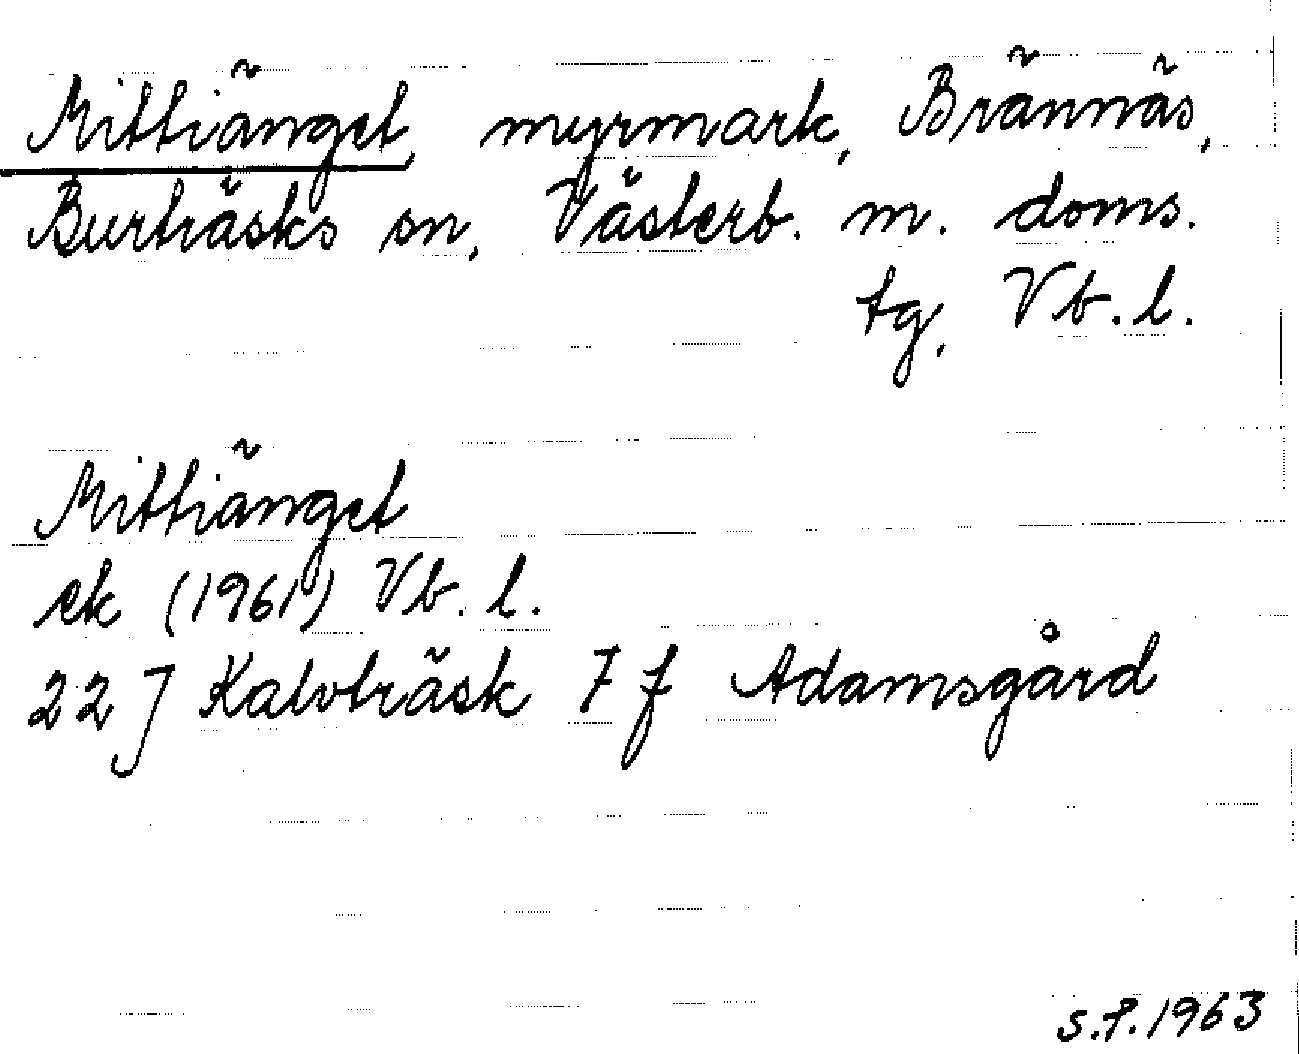 Mittiänget, myrmark, Brännäs,
Burträsks sn, Västerb. m. doms.
tg, Vb. l.
Mittiänget
ek (1961) Vb. l.
22 J Kalvträsk 7 f Adamsgård
S.P. 1963